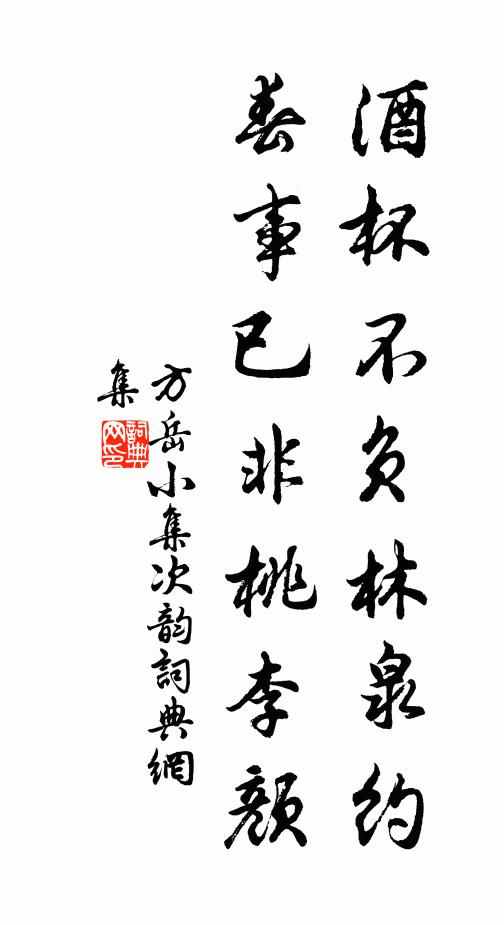 酒杯不负林泉约
春事已非桃李颜
方岳小集次韵詞典網
集
詞典网印